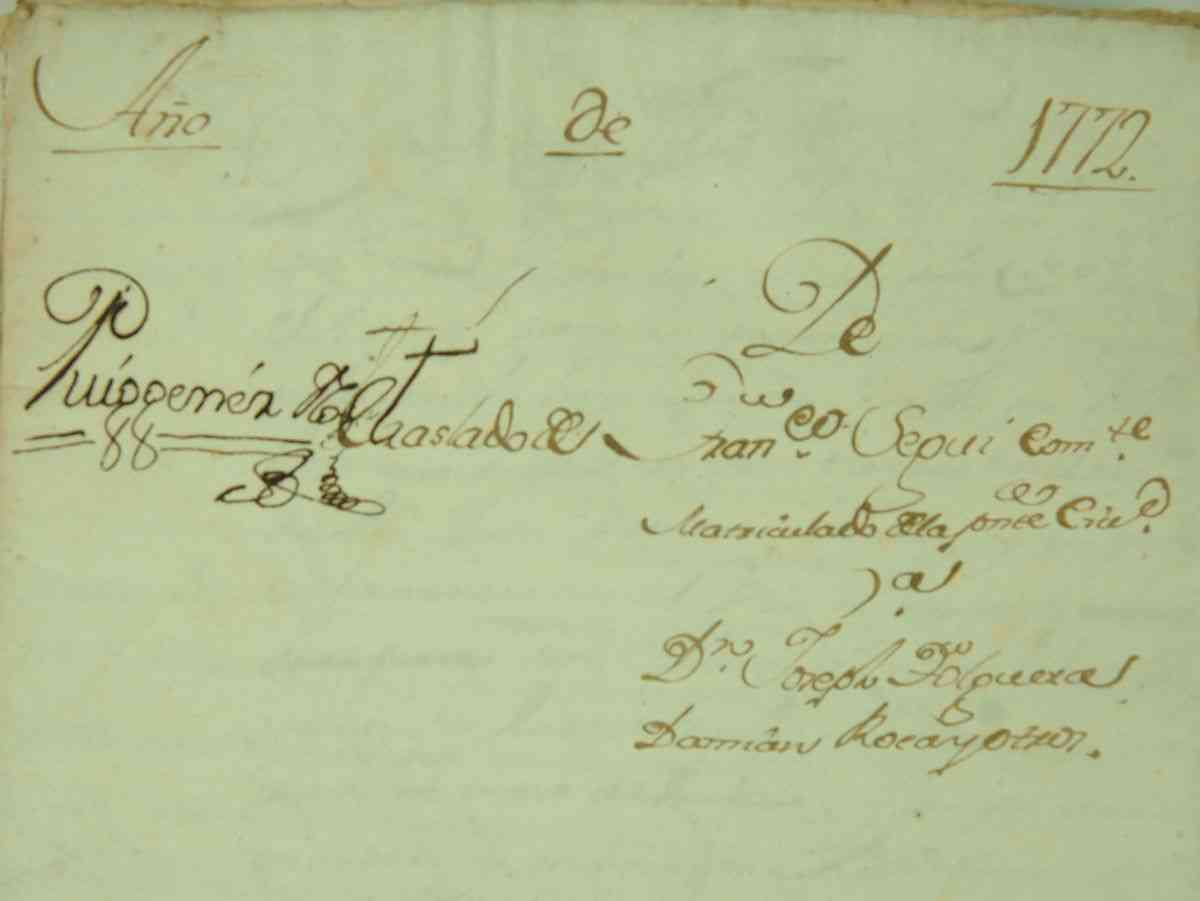 Año de 1772.
De
Puiggenér Not. traslado del Fran.co Segui com.te
Matriculado dela pnte Ciu.d
a
D.n Joseph Folguera
Damián Roca y otros.
88